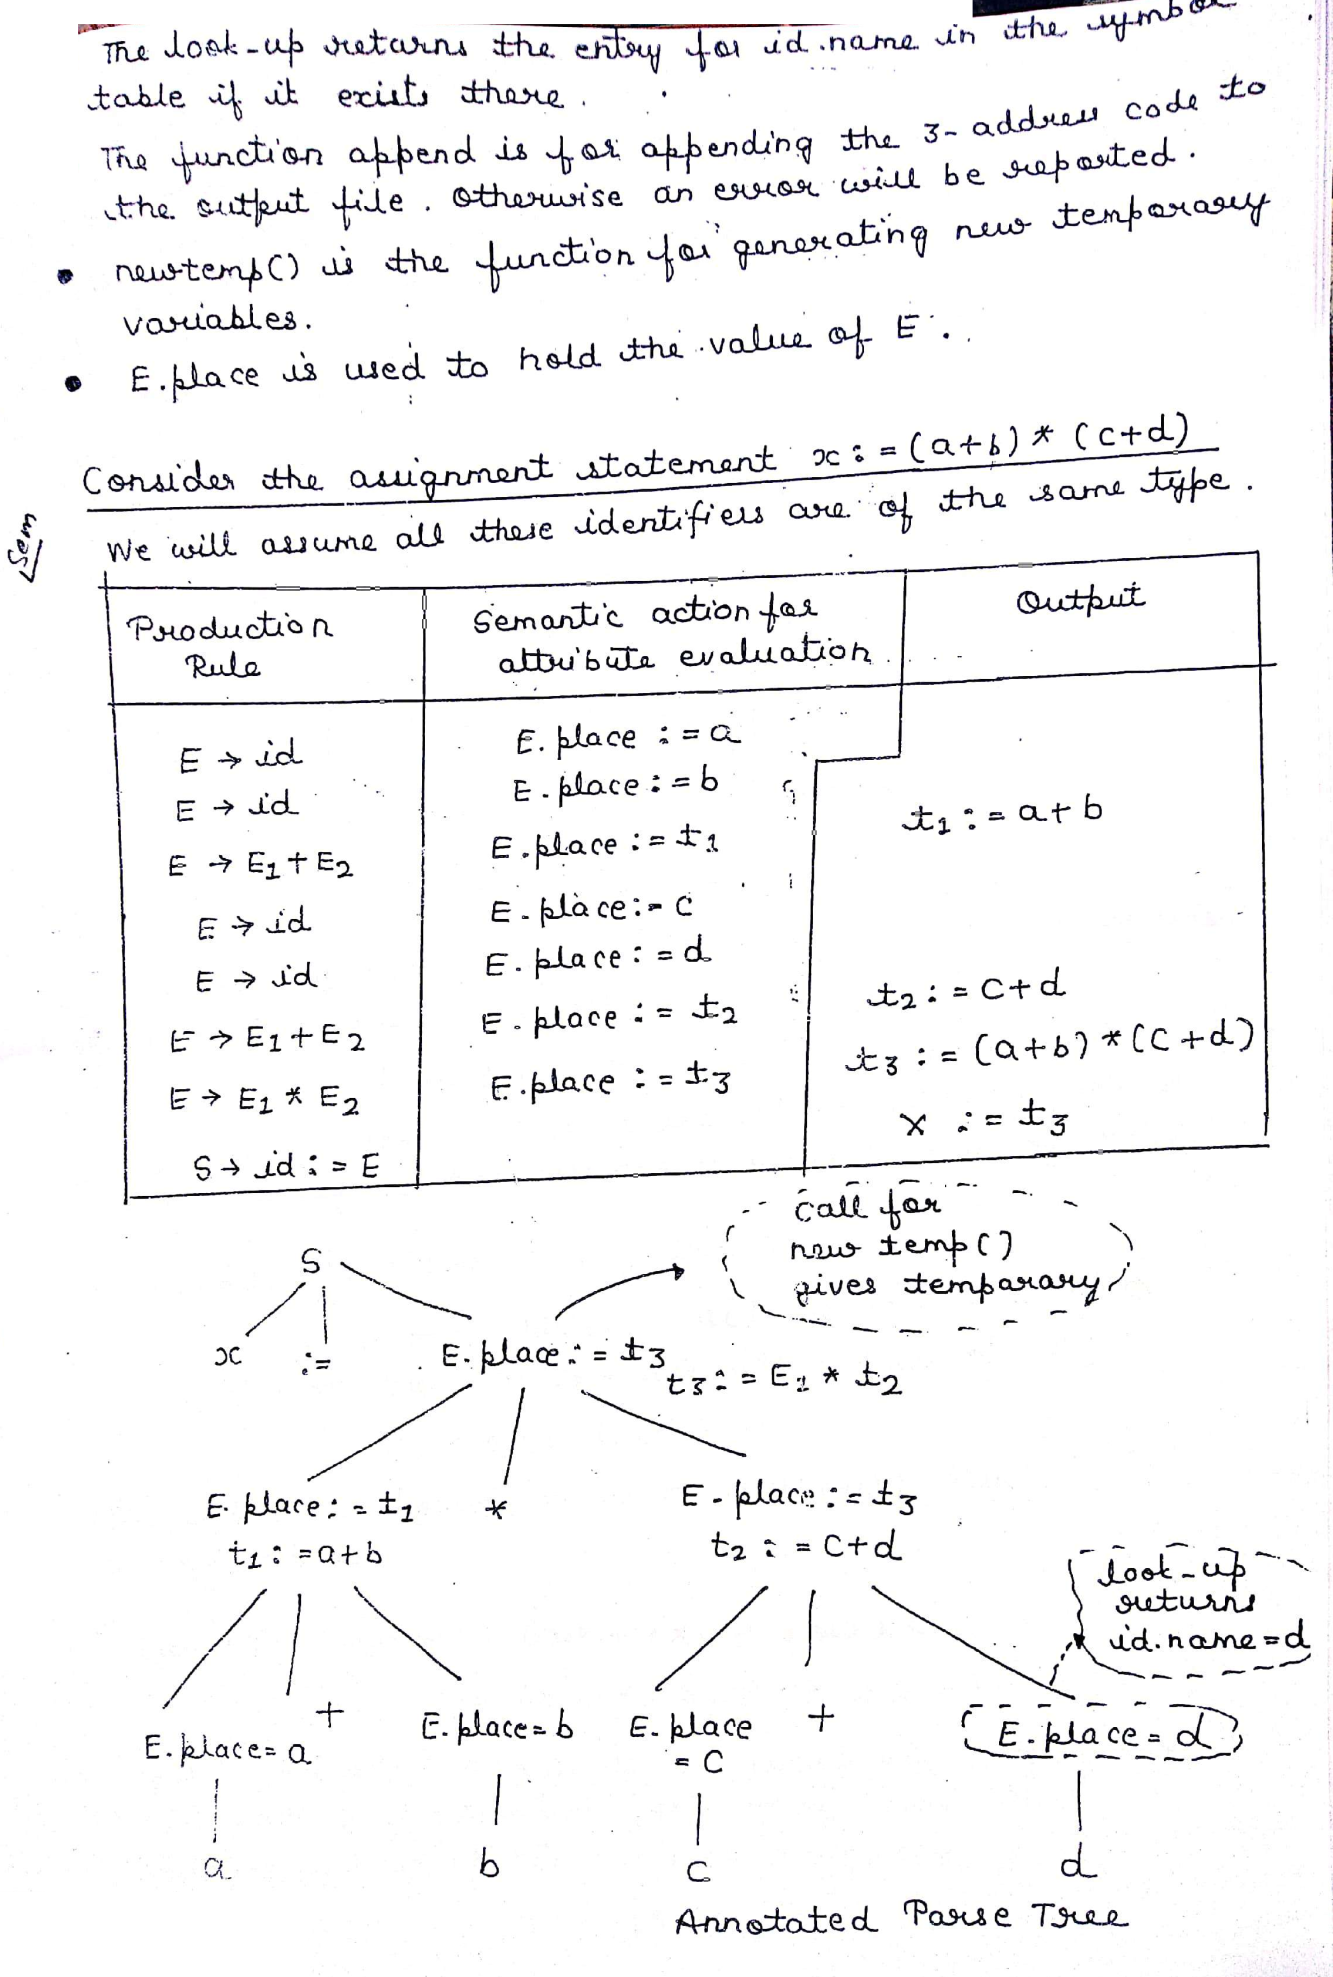 The look-up returns the entry for id.name in the symbol
table if it exists there.
The function append is for appending the 3-address code to
the output file. Otherwise an error will be reported.
• newtemp() is the function for generating new temporary
variables.
• E.place is used to hold the value of E.
Consider the assignment statement x := (a+b) * (c+d)
We will assume all these identifiers are of the same type.
5em
Production Rule | Semantic action for attribute evaluation | Output
E → id | E.place := a
E → id | E.place := b
E → E1 + E2 | E.place := t1 | t1 := a+b
E → id | E.place := c
E → id | E.place := d
E → E1 + E2 | E.place := t2 | t2 := c+d
E → E1 * E2 | E.place := t3 | t3 := (a+b) * (c+d)
S → id := E | x := t3
call for
new temp()
gives temparary
S
x := E.place := t3
t3 := E1 * t2
E.place := t1 * E.place := t3
t1 := a+b t2 := c+d
look-up
returns
id.name=d
E.place=a + E.place=b E.place + E.place=d
=c
a b c d
Annotated Parse Tree